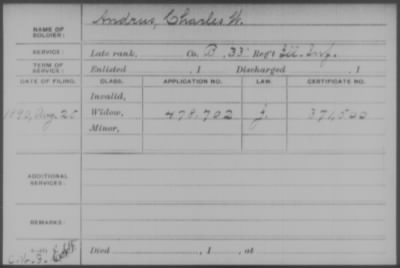 NAME OF SOLDIER: Andrus, Charles W.
SERVICE: Late rank, Co. B, 33 Reg't Ill. Inf.
TERM OF SERVICE: Enlisted , 1 Discharged , 1
DATE OF FILING. CLASS. APPLICATION NO. LAW. CERTIFICATE NO.
Invalid,
1890, Aug. 25 Widow, 478,702 J. 371,500
Minor,
ADDITIONAL SERVICES:
REMARKS:
C. No. 3.
Died , 1 , at